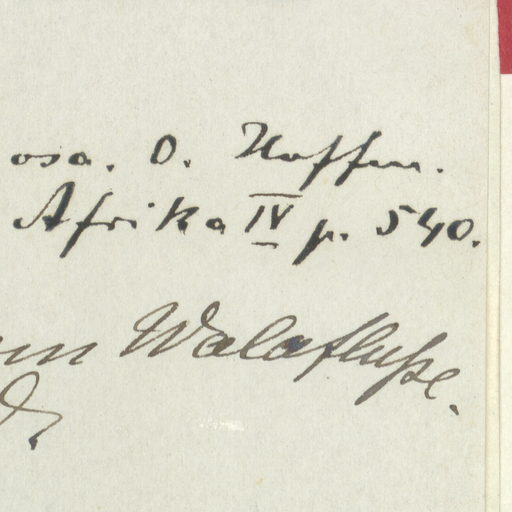 osa. O. Hoffm.
Afrika IV p. 540.
Walaflusse.